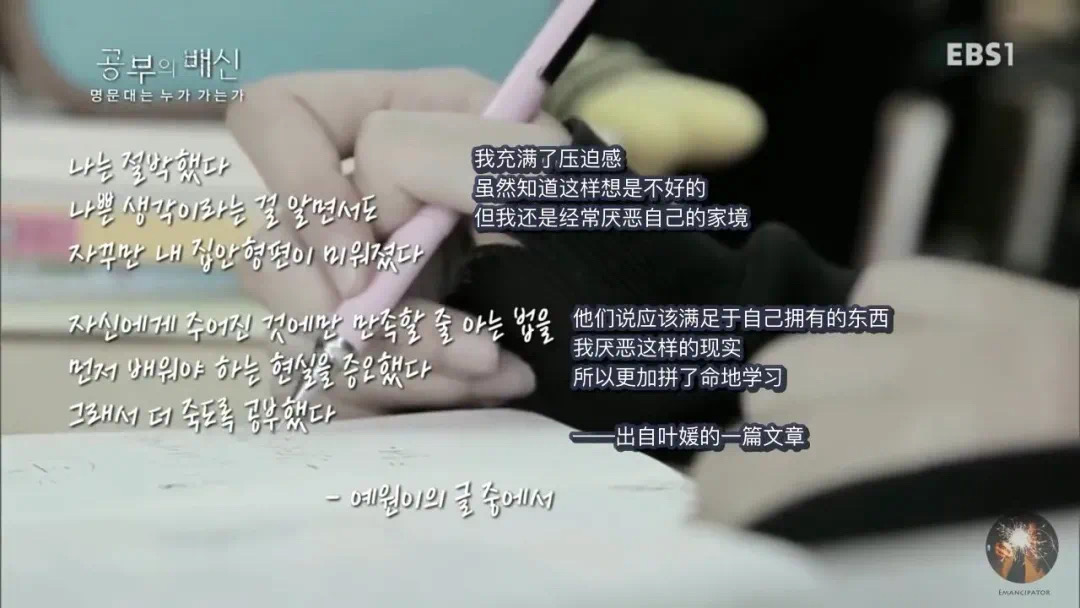 공부의 배신
명문대는 누가 가는가
EBS1
나는 절박했다
나쁜 생각이라는 걸 알면서도
자꾸만 내 집안형편이 미워졌다
我充满了压迫感
虽然知道这样想是不好的
但我还是经常厌恶自己的家境
자신에게 주어진 것에만 만족할 줄 아는 법을
먼저 배워야 하는 현실을 증오했다
그래서 더 죽도록 공부했다
他们说应该满足于自己拥有的东西
我厌恶这样的现实
所以更加拼了命地学习
——出自叶媛的一篇文章
- 예원이의 글 중에서
EMANCIPATOR